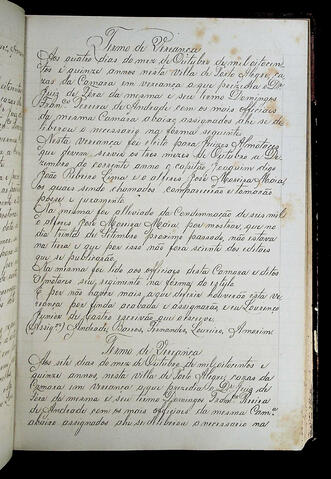 Termo de Vereança
Aos quatro dias do mez de Outubro de mil oitocen
tos e quinze annos nesta villa de Porto Alegre, ca
zas da Camara em vereança a que prezidia o Dr
Juiz de Fora da mesma e seu termo Domingos
Franco Pereira de Andrade com os mais officiaes
da mesma Camara abaixo assignados ahi se de
liberou o necessario na forma seguinte
Nesta vereança foi eleito para Juizes Almotaces
que devem servir os tres mezes de Outubro a De
zembro do corrente anno o capitão Joaquim
João Ribeiro e o alferes José Moniça Maia
os quaes sendo chamados comparecerão e tomarão
posse e juramento
Na mesma foi alliviado da Condemnação de seis mil
o alferes José Moniça Maia por mostrar, que no
dia trinta de Setembro proximo passado, não estava
na terra e que por isso não fora sciente dos editaes
que se publicarão
Na mesma foi lido aos officiaes desta Camara e ditos
Almotaces seu regimento na forma do estylo
E por não haver mais a que deferir houverão esta ve
riança por finda acabada e assignarão, e eu Lourenço
Junior de Castro escrivão que o escrevi
(Assigos) Andrade, Barros, Fernandes, Loureiro, Amorim
Termo de Vereança
Aos sete dias do mez de Outubro de mil oitocentos e
quinze annos, nesta villa de Porto Alegre, cazas da
Camara em vereança a que prezidia o Dr. Juiz de
Fora da mesma e seu termo Domingos Franco Pereira
de Andrade com os mais officiaes da mesma Camra
abaixo assignados ahi se deliberou o necessario na